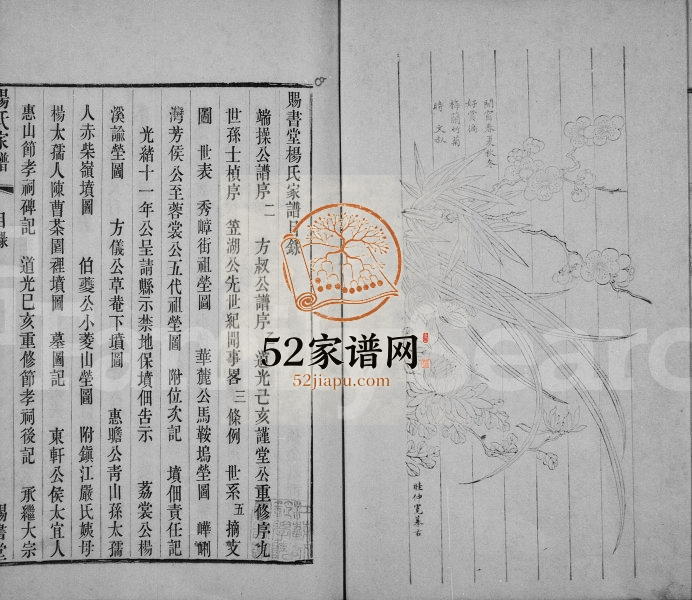 閒窗春夏秋冬
好賞偏
梅蘭竹菊
時 文
賜書堂楊氏家譜目錄
端操公譜序二 方叔公譜序 道光己亥謹堂公重修序九
世孫士楨序 笠湖公先世紀聞事畧三條例 世系五 摘支
圖 世表 秀嶂街祖塋圖 華麓公馬鞍塢塋圖 嶂
灣芳侯公至蓉裳公五代祖塋圖 附位次記 墳佃責任記
光緒十一年公呈請縣示禁地保墳佃告示 荔裳公楊
溪諭塋圖 方儀公草菴下墳圖 惠瞻公青山孫太孺
人赤柴嶺墳圖 伯夔公小菱山塋圖 附鎭江嚴氏姨母
楊太孺人陳曹茶園裡墳圖 墓圖記 東軒公侯太宜人
惠山節孝祠碑記 道光己亥重修節孝祠後記 承繼大宗
楊氏家譜 目錄 賜書堂
52家谱网
52jiapu.com
FamilySearch